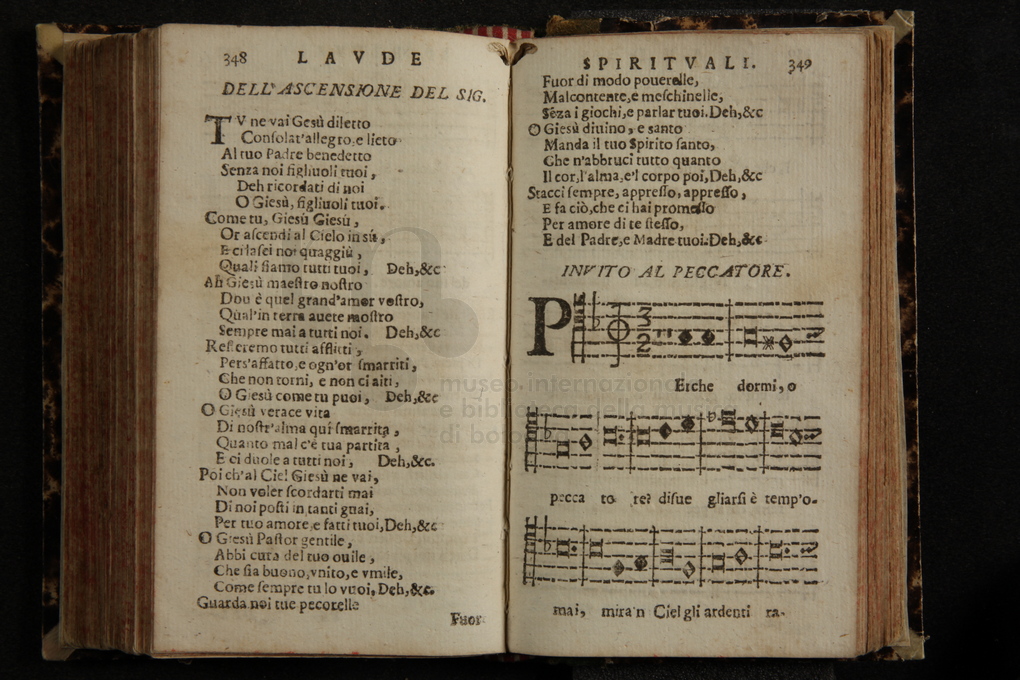 348 LAVDE
DELL'ASCENSIONE DEL SIG.
TV ne vai Gesù diletto
Conſolat'allegro, e lieto
Al tuo Padre benedetto
Senza noi figliuoli tuoi,
Deh ricordati di noi
O Giesù, figliuoli tuoi.
Come tu, Giesù Giesù,
Or aſcendi al Cielo in sù,
E ci laſci noi quaggiù,
Quali ſiamo tutti tuoi, Deh,&c
Ah Giesù maeſtro noſtro
Dou è quel grand'amor voſtro,
Qual'in terra auete moſtro
Sempre mai a tutti noi. Deh,&c
Reſteremo tutti afflitti,
Pers'affatto, e ogn'or ſmarriti,
Che non torni, e non ci aiti,
O Giesù come tu puoi, Deh,&c
O Giesù verace vita
Di noſtr'alma quì ſmarrita,
Quanto mal c'è tua partita,
E ci duole a tutti noi, Deh,&c.
Poi ch'al Ciel Giesù ne vai,
Non voler ſcordarti mai
Di noi poſti in tanti guai,
Per tuo amore e fatti tuoi,Deh,&c
O Giesù Paſtor gentile,
Abbi cura del tuo ouile,
Che ſia buono,vnito,e vmile,
Come ſempre tu lo vuoi, Deh,&c.
Guarda noi tue pecorelle
Fuor
SPIRITVALI. 349
Fuor di modo pouerelle,
Malcontente,e meſchinelle,
Sẽza i giochi,e parlar tuoi.Deh,&c
O Giesù diuino, e santo
Manda il tuo Spirito ſanto,
Che n'abbruci tutto quanto
Il cor,l'alma,e'l corpo poi,Deh,&c
Stacci ſempre, appreſſo, appreſſo,
E fa ciò,che ci hai promeſſo
Per amore di te ſteſſo,
E del Padre,e Madre tuoi.Deh,&c
INVITO AL PECCATORE.
P
3
2
Erche dormi, o
pecca to re? diſue gliarſi è temp'o-
mai, mira'n Ciel gli ardenti ra-
museo internazional
e biblioteca
di bolo